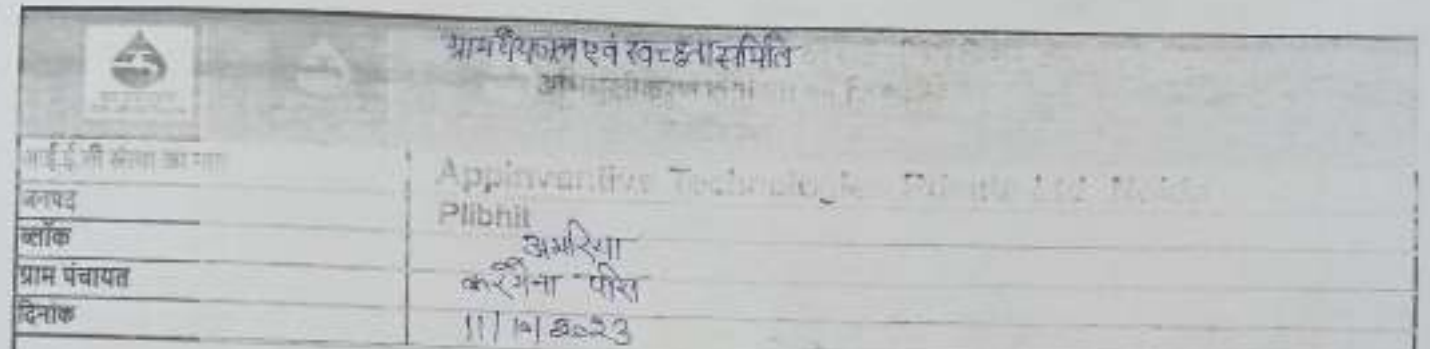 ग्राम पेयजल एवं स्वच्छता समिति
आई.ई.सी संस्था का नाम
Appinventive Technologies Private Ltd Noida
जनपद
Plibhit
ब्लॉक
अमरिया
ग्राम पंचायत
करगैना
दिनांक
2023